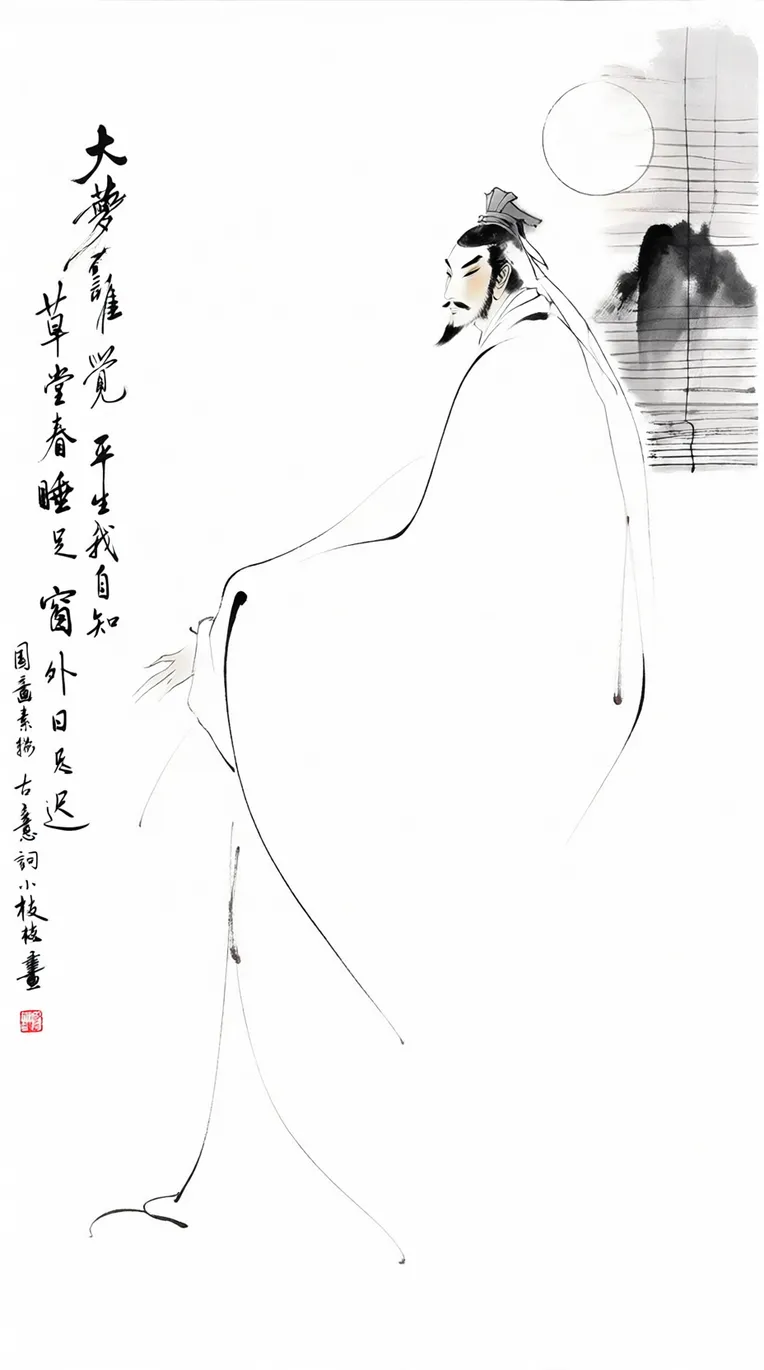 大夢誰覺 平生我自知
草堂春睡足 窗外日迟
国畫素描 古意詞小枝枝畫